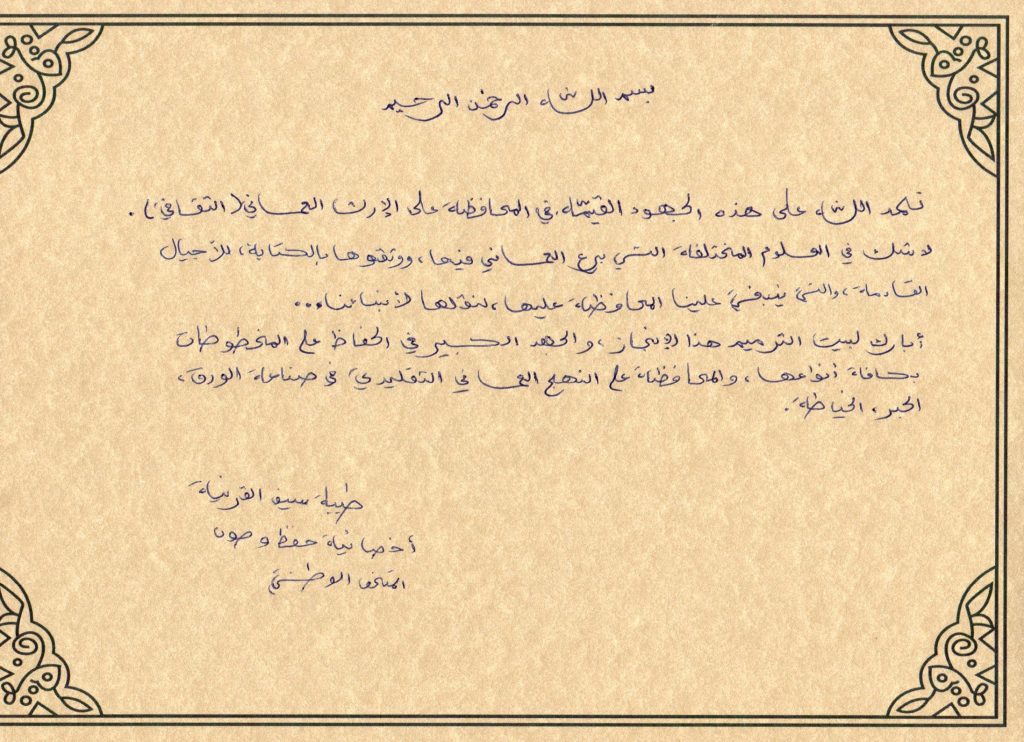 بسم الله الرحمن الرحيم
نحمد الله على هذه الجهود القيّمة، في المحافظة على الإرث العماني (الثقافي).
لا شك في العلوم المختلفة التي برع العماني فيها، ووثقوها بالكتابة، للأجيال
القادمة، والتي ينبغي علينا المحافظة عليها، لننقلها لأبنائنا...
أبارك لبيت الترميم هذا الإنجاز، والجهد الكبير في الحفاظ على المخطوطات
بكافة أنواعها، والمحافظة على النهج العماني التقليدي في صناعة الورق،
الحبر، الخياطة.
طيبة سيف القرنية
أخصائية حفظ وصون
المتحف الوطني